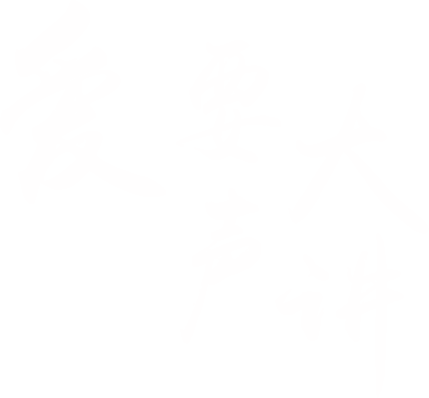 爱
要大
声讲